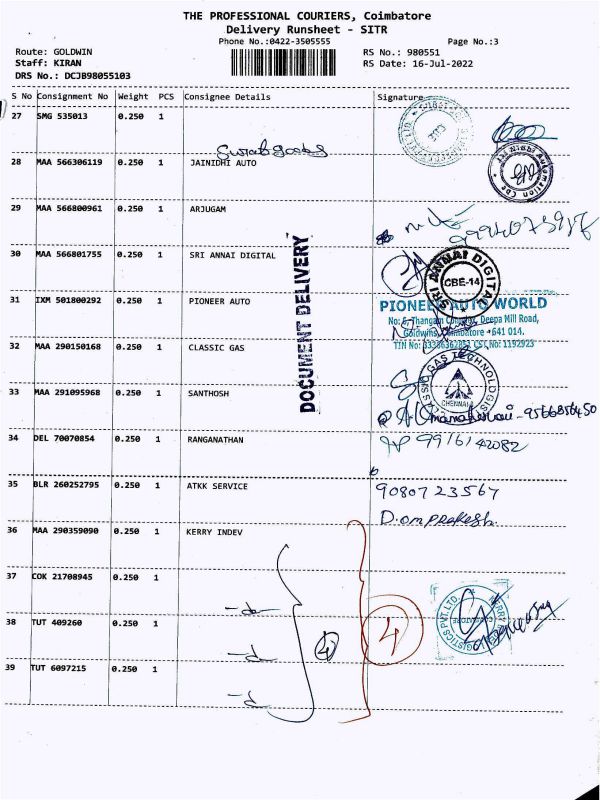 THE PROFESSIONAL COURIERS, Coimbatore
Delivery Runsheet - SITR
Phone No.:0422-3505555
Page No.:3
Route: GOLDWIN
RS No.: 980551
Staff: KIRAN
RS Date: 16-Jul-2022
DRS No.: DCJB98055103
S No Consignment No Weight PCS Consignee Details Signature
27 SMG 535013 0.250 1
28 MAA 566306119 0.250 1 JAINIDHI AUTO
29 MAA 566800961 0.250 1 ARJUGAM
30 MAA 566801755 0.250 1 SRI ANNAI DIGITAL
SRI ANNAI DIGITAL
CBE-14
DOCUMENT DELIVERY
31 IXM 501800292 0.250 1 PIONEER AUTO
PIONEER AUTO WORLD
Deepa Mill Road,
Goldwins, Coimbatore - 641 014.
32 MAA 290150168 0.250 1 CLASSIC GAS
GAS TECHNOLOGIES
CHENNAI
33 MAA 291095968 0.250 1 SANTHOSH
34 DEL 70070854 0.250 1 RANGANATHAN
9916142082
35 BLR 260252795 0.250 1 ATKK SERVICE
9080723567
D.omprakesh
36 MAA 290359090 0.250 1 KERRY INDEV
37 COK 21708945 0.250 1
38 TUT 409260 0.250 1
-do-
4
4
39 TUT 6097215 0.250 1